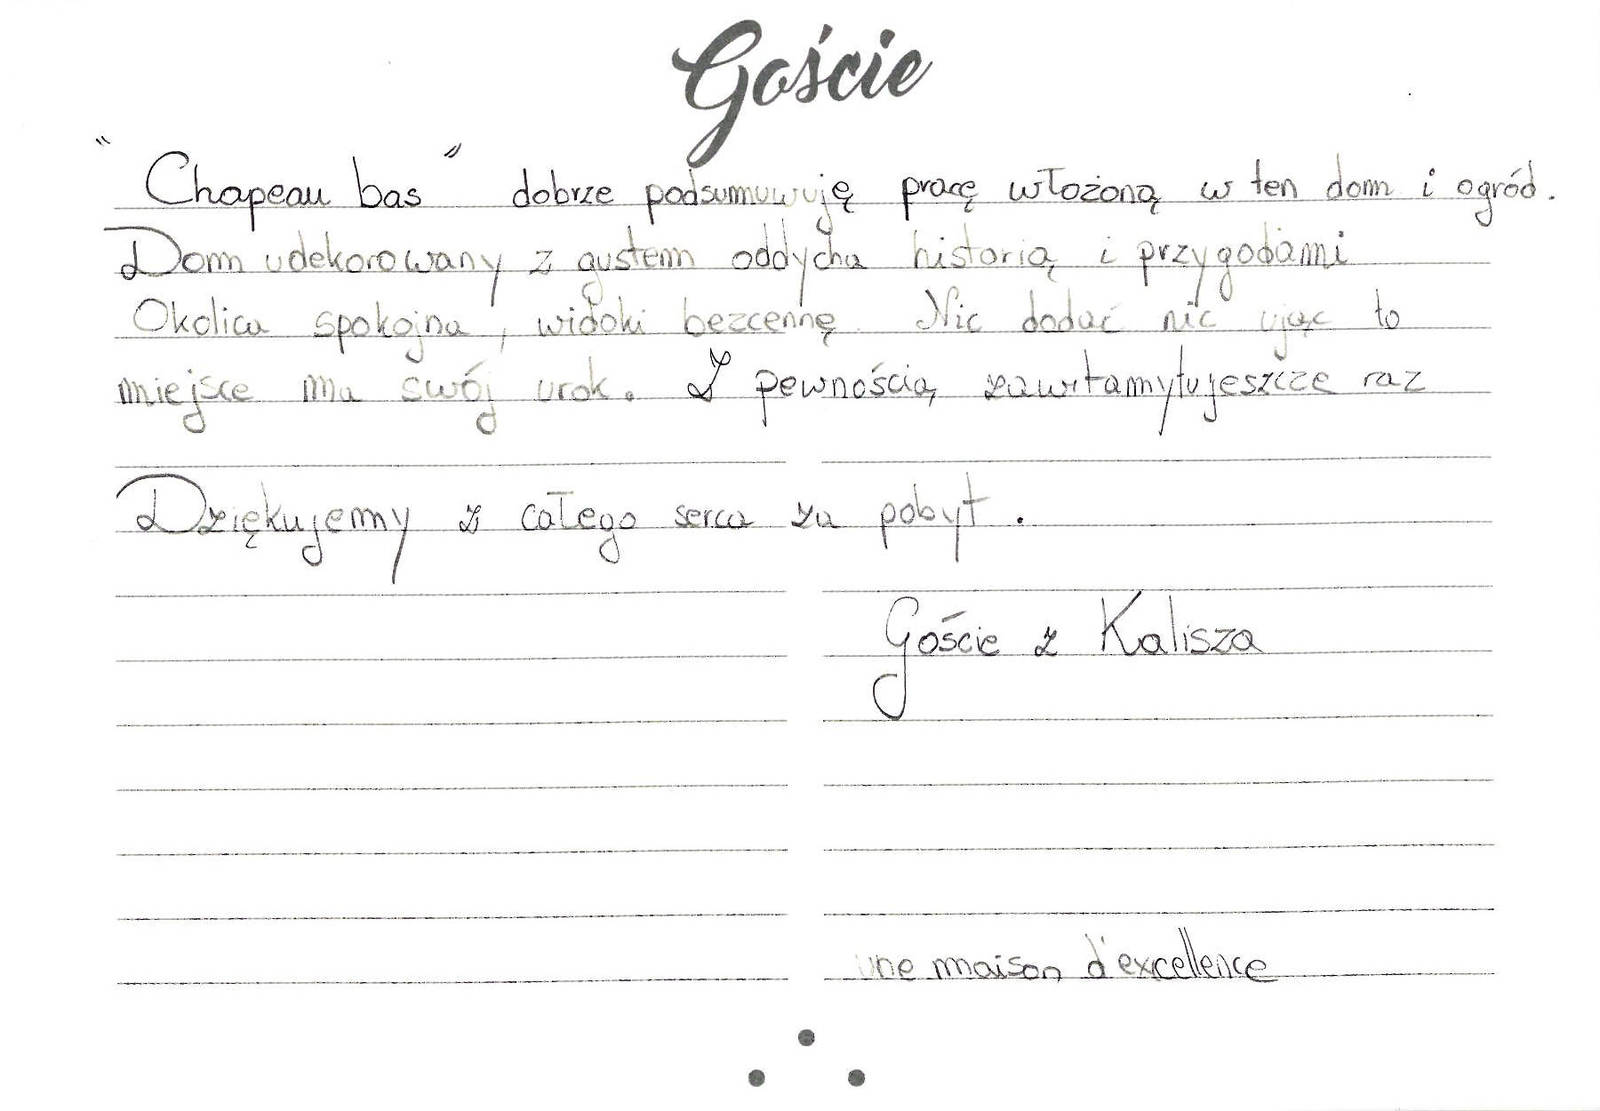 Goście
"Chapeau bas" dobrze podsumuwuję pracę włożoną w ten dom i ogród.
Dom udekorowany z gustem oddycha historią i przygodami
Okolica spokojna, widoki bezcennę. Nic dodać nic ująć to
miejsce ma swój urok. Z pewnością zawitamy tu jeszcze raz
Dziękujemy z całego serca za pobyt.
Goście z Kalisza
une maison d'excellence